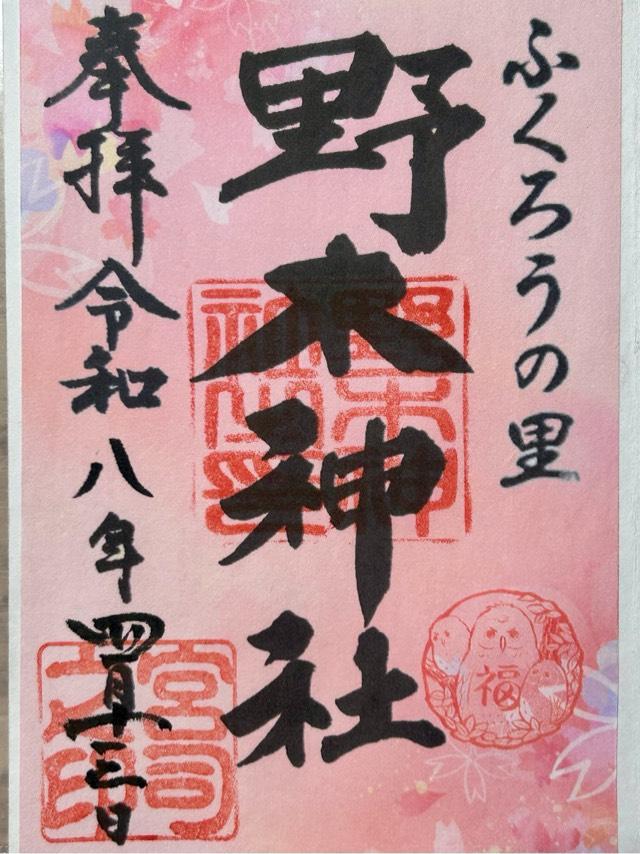 ふくろうの里
野木神社
野木神社印
福
奉拝 令和八年四月十三日
宮司之印